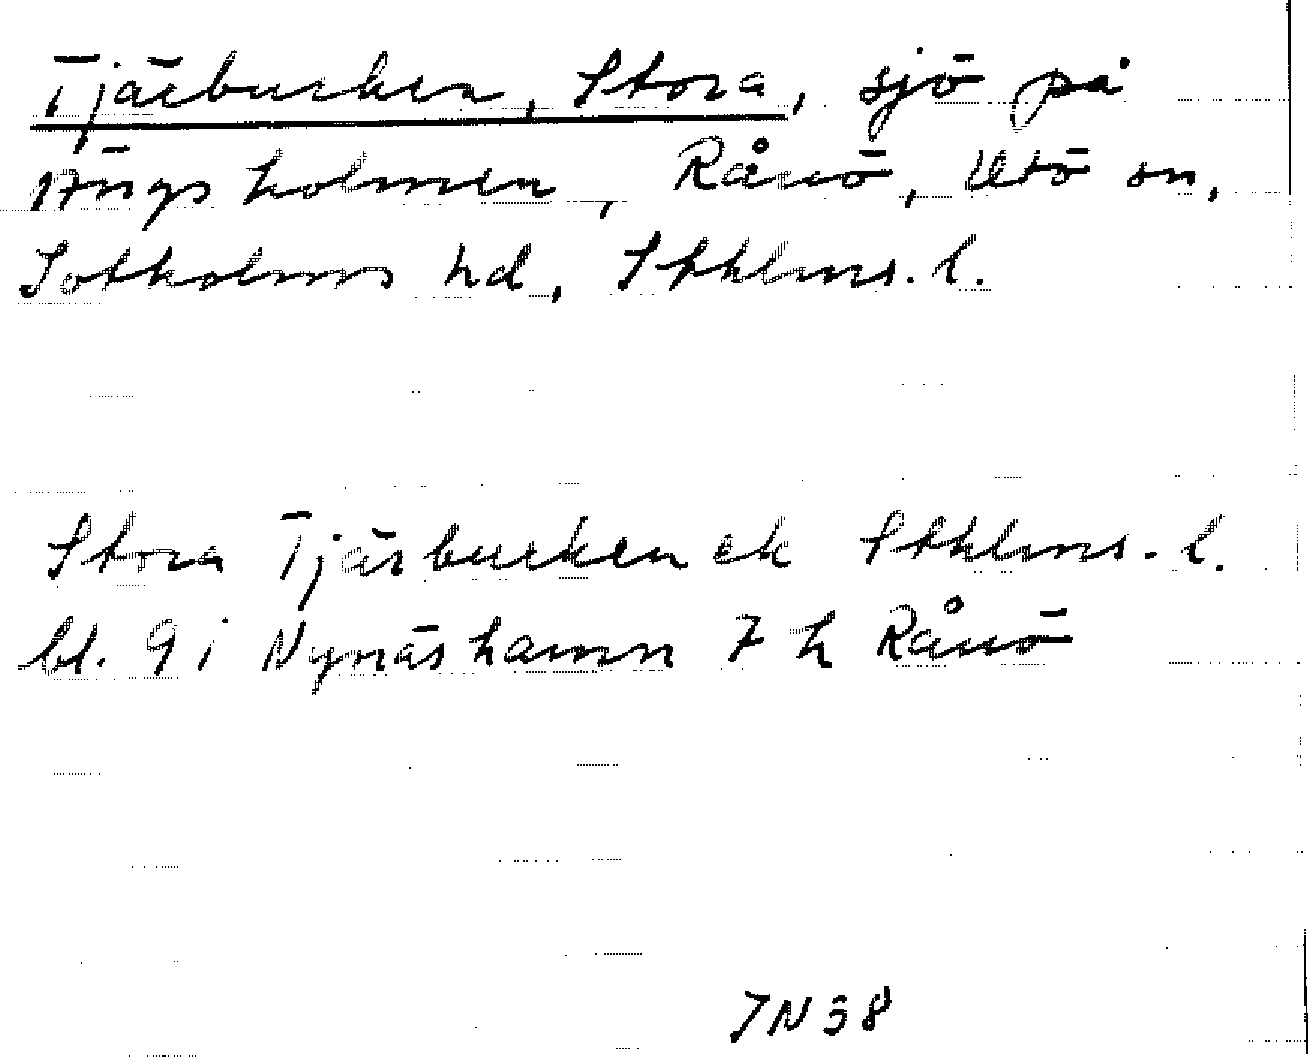 Tjärburken, Stora, sjö på
Ängsholmen, Rånö, Utö sn,
Sotholms hd, Sthlms. l.
Stora Tjärburken ek Sthlms. l.
bl. 91 Nynäshamn 7 h Rånö
JN 38